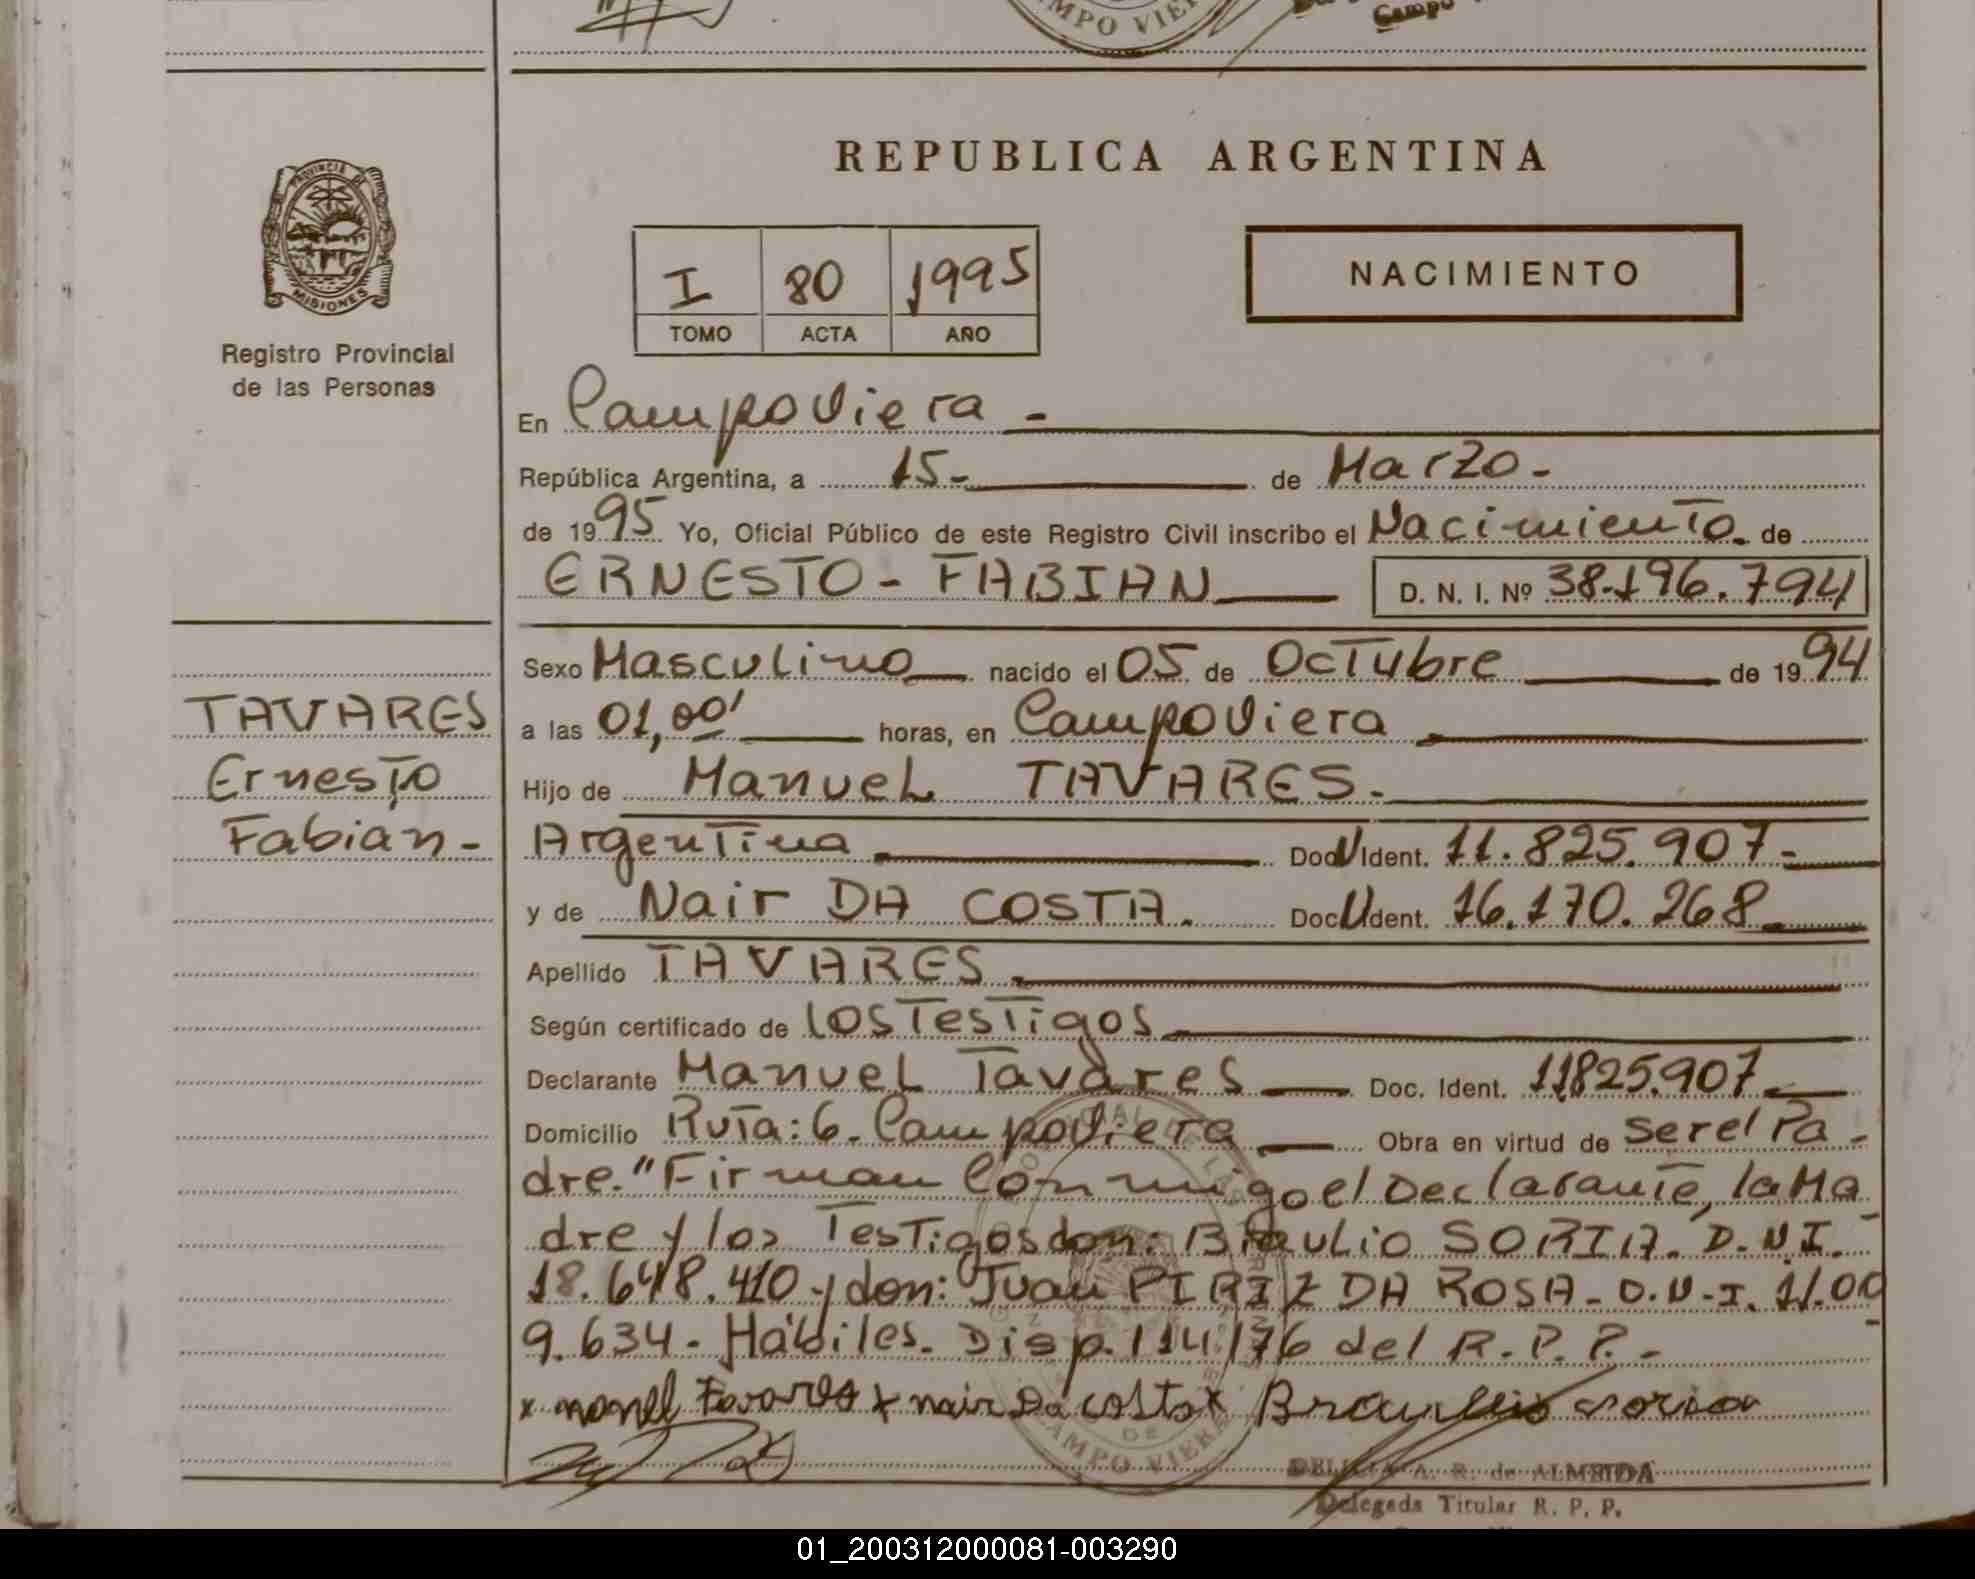 CAMPO VIERA
Campo
PROVINCIA DE
MISIONES
Registro Provincial
de las Personas
REPUBLICA ARGENTINA
I 80 1995
TOMO ACTA AÑO
NACIMIENTO
En Campo Viera -
República Argentina, a 15- de Marzo-
de 1995 Yo, Oficial Público de este Registro Civil inscribo el Nacimiento de
ERNESTO - FABIAN D. N. I. Nº 38.196.794
Sexo Masculino nacido el 05 de Octubre de 1994
a las 01,00' horas, en Campo Viera
Hijo de Manuel TAVARES.-
Argentina Doc. Ident. 11.825.907-
y de Nair DA COSTA. Doc. Ident. 16.170.268
Apellido TAVARES.
Según certificado de los Testigos
Declarante Manuel Tavares Doc. Ident. 11825.907
Domicilio Ruta: 6. Campo Viera Obra en virtud de ser el Pa-
dre." Firman Conmigo el Declarante, la Ma
dre y los Testigos don: Braulio SORIA. D.N.I.-
18.648.410 y don: Juan PIRIZ DA ROSA - D.N.I. 11.00
9.634- Hábiles. Disp. 114/76 del R.P.P.-
x manuel Tavares x nair Da costa x Braulio soria
TAVARES
Ernesto
Fabian-
CAMPO VIERA
DELICIA A. R. de ALMEIDA
Delegada Titular R. P. P.
01_200312000081-003290